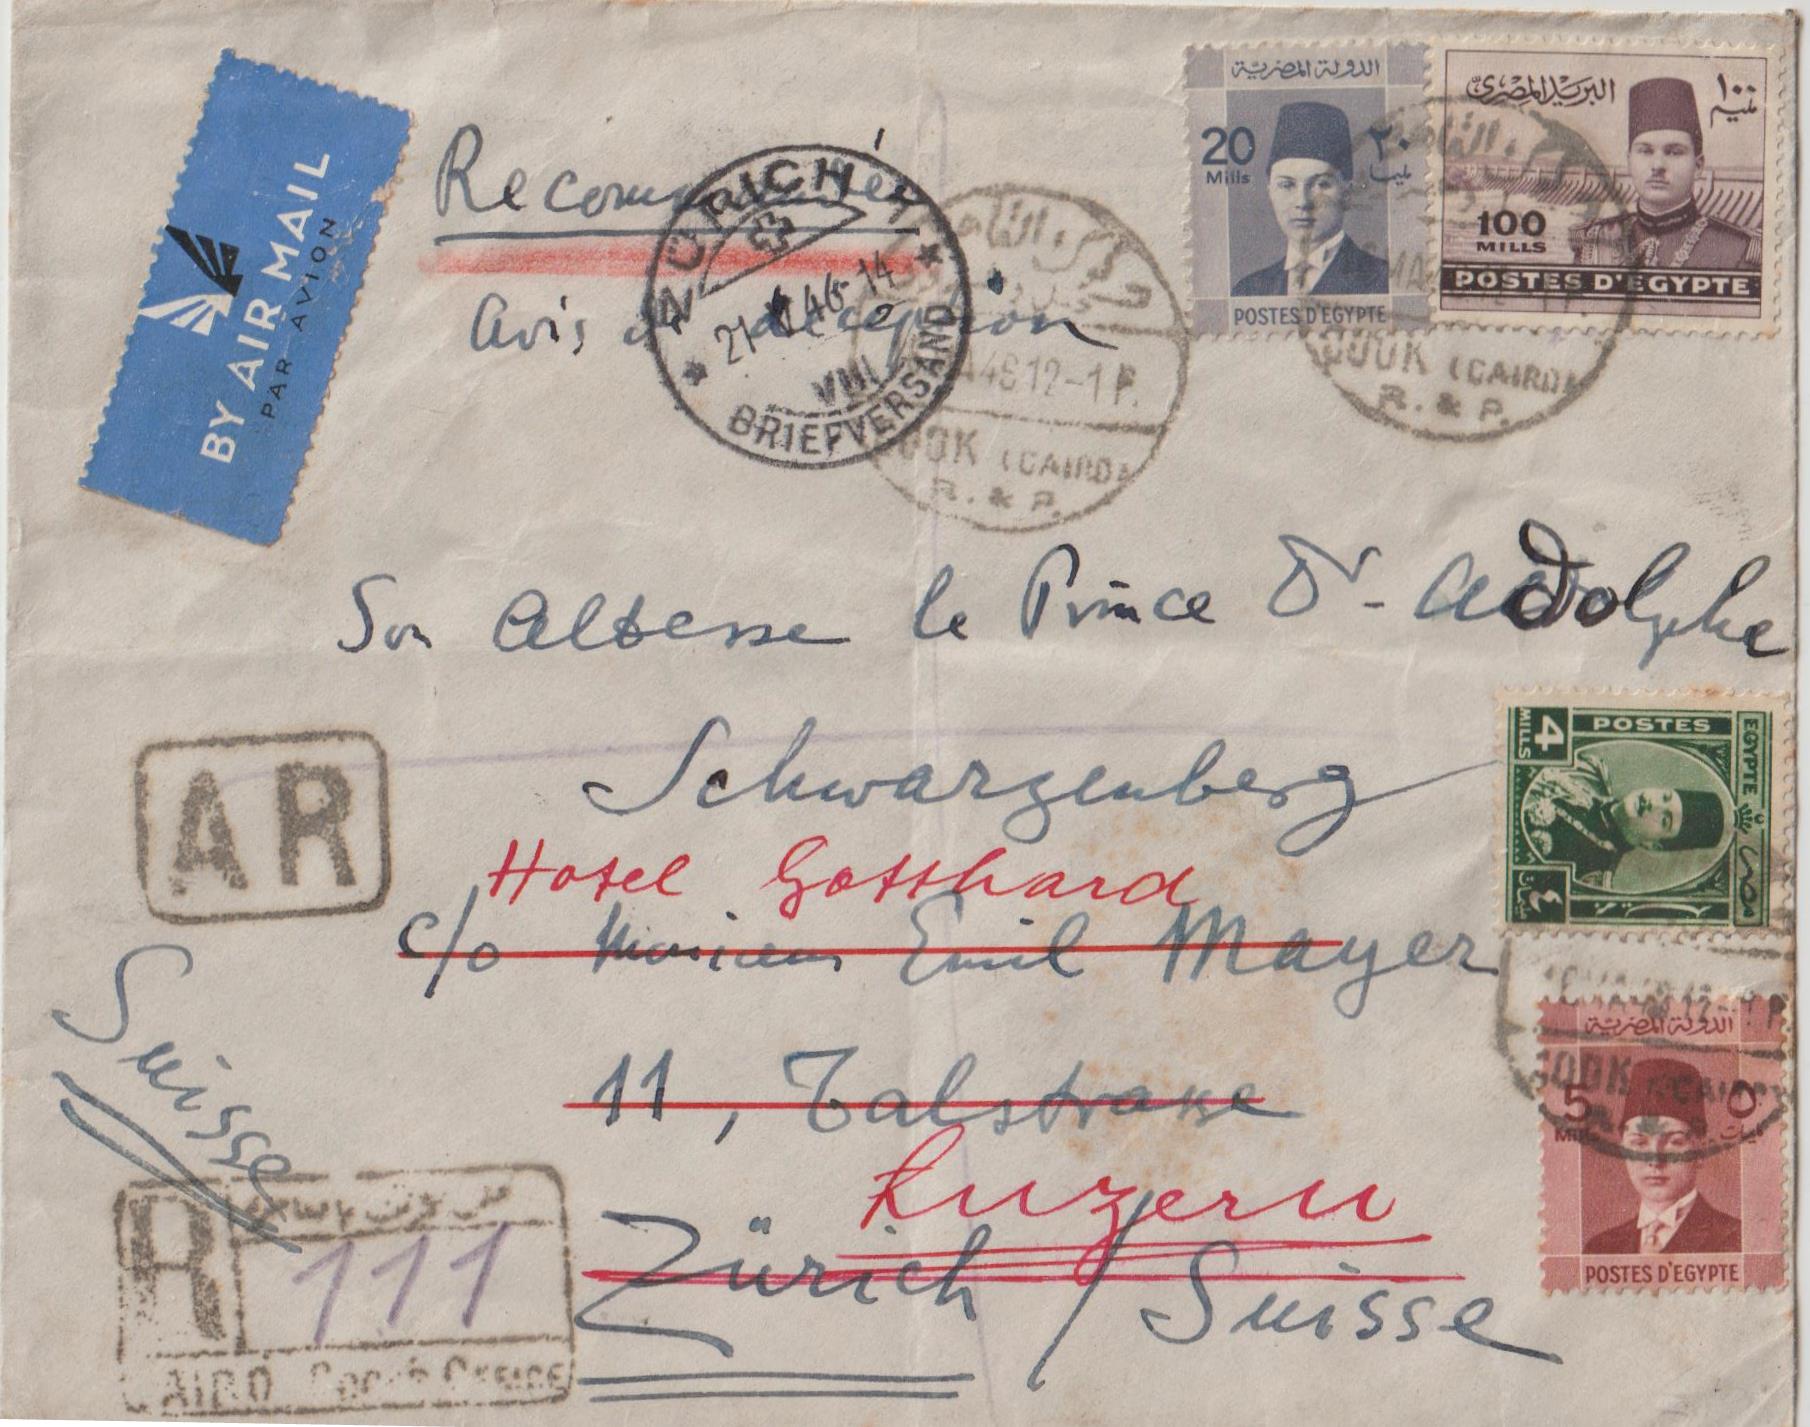 BY AIR MAIL
PAR AVION
Recommandée
Avis de réception
ZÜRICH
21. 46-14
VIII
BRIEFVERSAND
A46 12-1 P.
COOK (CAIRO)
R. & P.
الدولة المصرية
20
Mills
٢٠
POSTES D'EGYPTE
البريد المصرى
١٠٠
مليم
100
MILLS
POSTES D'EGYPTE
COOK (CAIRO)
R. & P.
Son Altesse le Prince Dr. Adolphe
Schwarzenberg
Hotel Gotthard
c/o Monsieur Emil Mayer
11, Talstrasse
Luzern
Zürich / Suisse
Suisse
AR
R
111
CAIRO Cook's Office
4
MILLS
POSTES
EGYPTE
٤
COOK (CAIRO)
الدولة المصرية
5
Mills
٥
POSTES D'EGYPTE